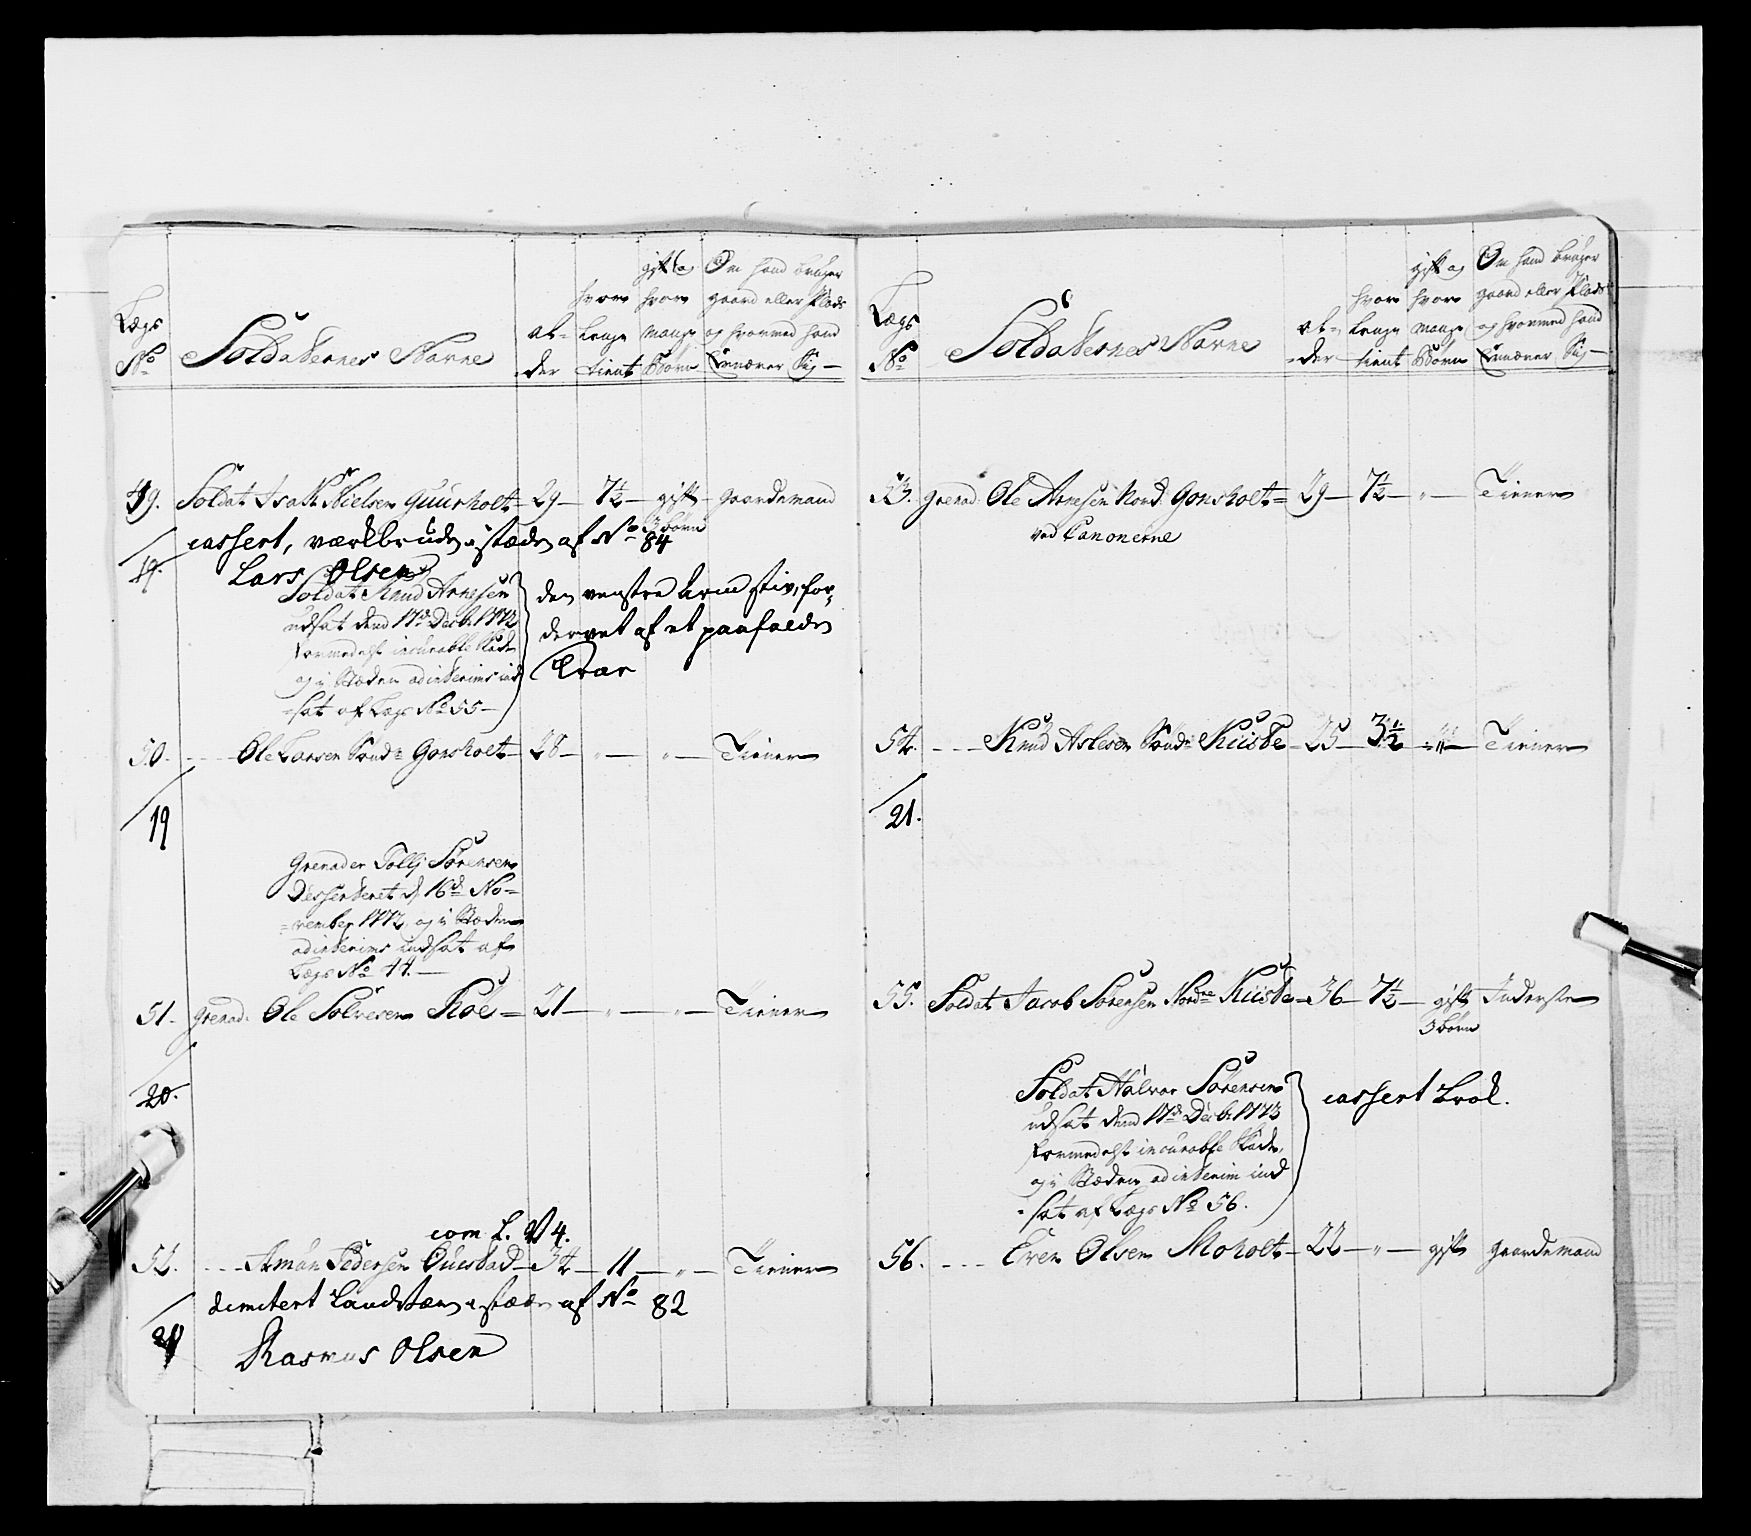 Lægs No
Soldaternes Navne
al-
der
hvor
lenge
tient
gift og
hvor
mange
Børn
Om hand bruger
gaard eller Plads
og hvormed hand
Ernærer Sig —
49. Soldat Isak Nielsen Guusholt — 29 — 7½ — gift — gaardemand
3 børn
cassert, værkbruden i stæden af No 84
19.
Lars Olsen
Soldat Knud Arnesen
udsat dend 17d Decbr 1773
formedelst incurable skade
og i Stæden ad interims ind
-sat af Lægs No 55 —
den venstre Arm stiv, for-
dervet af et paafalden
50. - - - Ole Larsen Sønd= Gonsholt — 28 — " — " — Tiener
19
Grenader Tollej Sørensen
Desserteret d 16d No-
-vember 1772, og i Stæden
ad interims indsat af
Lægs No 44. —
51. Grenad. Ole Solvesen Röe — 21 — " — " — Tiener
20.
com L. V 4.
52. - - - Amun Pedersen — 34 — 11 — " — Tiener
dimitert Landværn i stæden af No 82
21
Rasmus Olsen
Lægs No
Soldaternes Navne
al-
der
hvor
lenge
tient
gift og
hvor
mange
Børn
Om hand bruger
gaard eller Plads
og hvormed hand
Ernærer Sig —
53. Grenad. Ole Arnesen Nord. Gonsholt — 29 — 7½ — " — Tiener
ved Canonerne
54. - - - Knud Aslesen Sønd= Kiisbe — 25 — 3½ — " — Tiener
21.
55. Soldat Jacob Sørensen Nordre Kiisbe — 36 — 7½ — gift Inderste
3 børn
Soldat Halvor Sørensen
udsat dend 17d Decbr 1773
formedelst incurable skade,
og i Stæden ad interim ind
-sat af Lægs No 56.
cassert
56. - - - Even Olsen Moholt — 22 — " — gift gaardemand